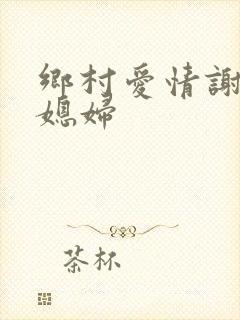 鄉村愛情謝
媳婦
茶杯